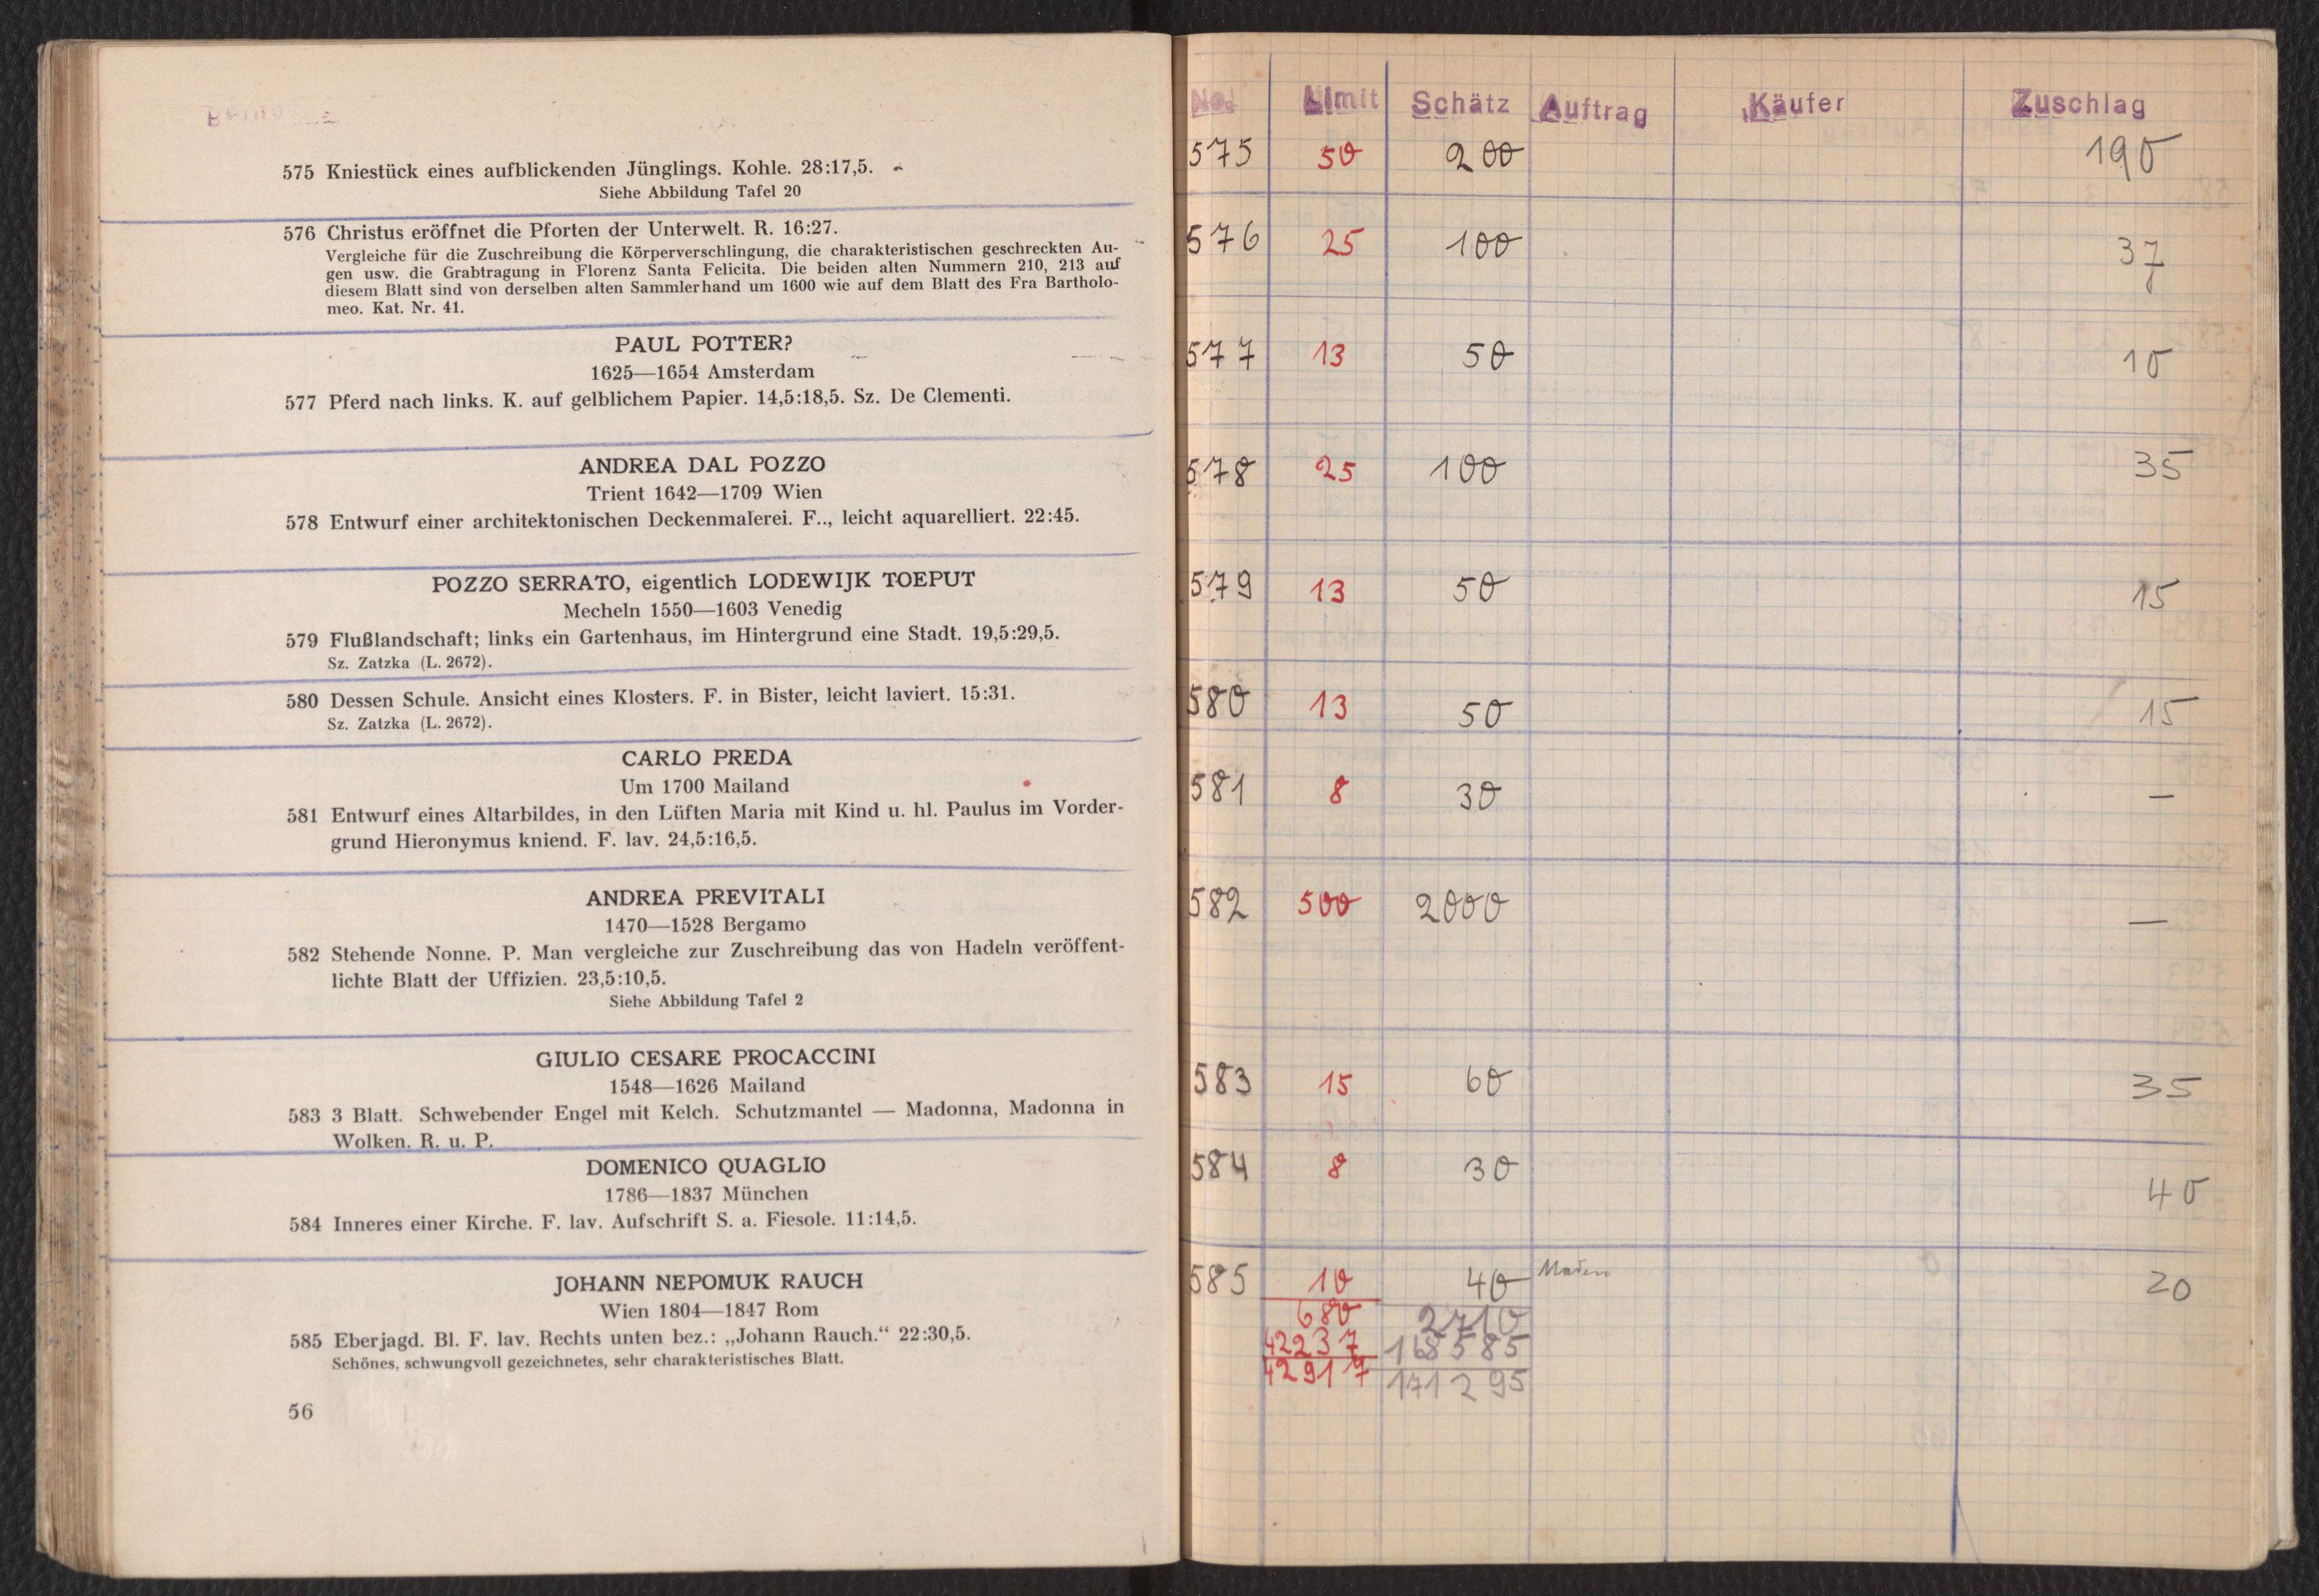 575 Kniestück eines aufblickenden Jünglings. Kohle. 28:17,5.
Siehe Abbildung Tafel 20
576 Christus eröffnet die Pforten der Unterwelt. R. 16:27.
Vergleiche für die Zuschreibung die Körperverschlingung, die charakteristischen geschreckten Au-
gen usw. die Grabtragung in Florenz Santa Felicita. Die beiden alten Nummern 210, 213 auf
diesem Blatt sind von derselben alten Sammlerhand um 1600 wie auf dem Blatt des Fra Bartholo-
meo. Kat. Nr. 41.
PAUL POTTER?
1625—1654 Amsterdam
577 Pferd nach links. K. auf gelblichem Papier. 14,5:18,5. Sz. De Clementi.
ANDREA DAL POZZO
Trient 1642—1709 Wien
578 Entwurf einer architektonischen Deckenmalerei. F.., leicht aquarelliert. 22:45.
POZZO SERRATO, eigentlich LODEWIJK TOEPUT
Mecheln 1550—1603 Venedig
579 Flußlandschaft; links ein Gartenhaus, im Hintergrund eine Stadt. 19,5:29,5.
Sz. Zatzka (L. 2672).
580 Dessen Schule. Ansicht eines Klosters. F. in Bister, leicht laviert. 15:31.
Sz. Zatzka (L. 2672).
CARLO PREDA
Um 1700 Mailand
581 Entwurf eines Altarbildes, in den Lüften Maria mit Kind u. hl. Paulus im Vorder-
grund Hieronymus kniend. F. lav. 24,5:16,5.
ANDREA PREVITALI
1470—1528 Bergamo
582 Stehende Nonne. P. Man vergleiche zur Zuschreibung das von Hadeln veröffent-
lichte Blatt der Uffizien. 23,5:10,5.
Siehe Abbildung Tafel 2
GIULIO CESARE PROCACCINI
1548—1626 Mailand
583 3 Blatt. Schwebender Engel mit Kelch. Schutzmantel — Madonna, Madonna in
Wolken. R. u. P.
DOMENICO QUAGLIO
1786—1837 München
584 Inneres einer Kirche. F. lav. Aufschrift S. a. Fiesole. 11:14,5.
JOHANN NEPOMUK RAUCH
Wien 1804—1847 Rom
585 Eberjagd. Bl. F. lav. Rechts unten bez.: „Johann Rauch.“ 22:30,5.
Schönes, schwungvoll gezeichnetes, sehr charakteristisches Blatt.
56
No. Limit Schätz Auftrag Käufer Zuschlag
575 50 200 190
576 25 100 37
577 13 50 10
578 25 100 35
579 13 50 15
580 13 50 15
581 8 30 —
582 500 2000 —
583 15 60 35
584 8 30 40
585 10 40 20
680 2710
42237 168585
42917 171295